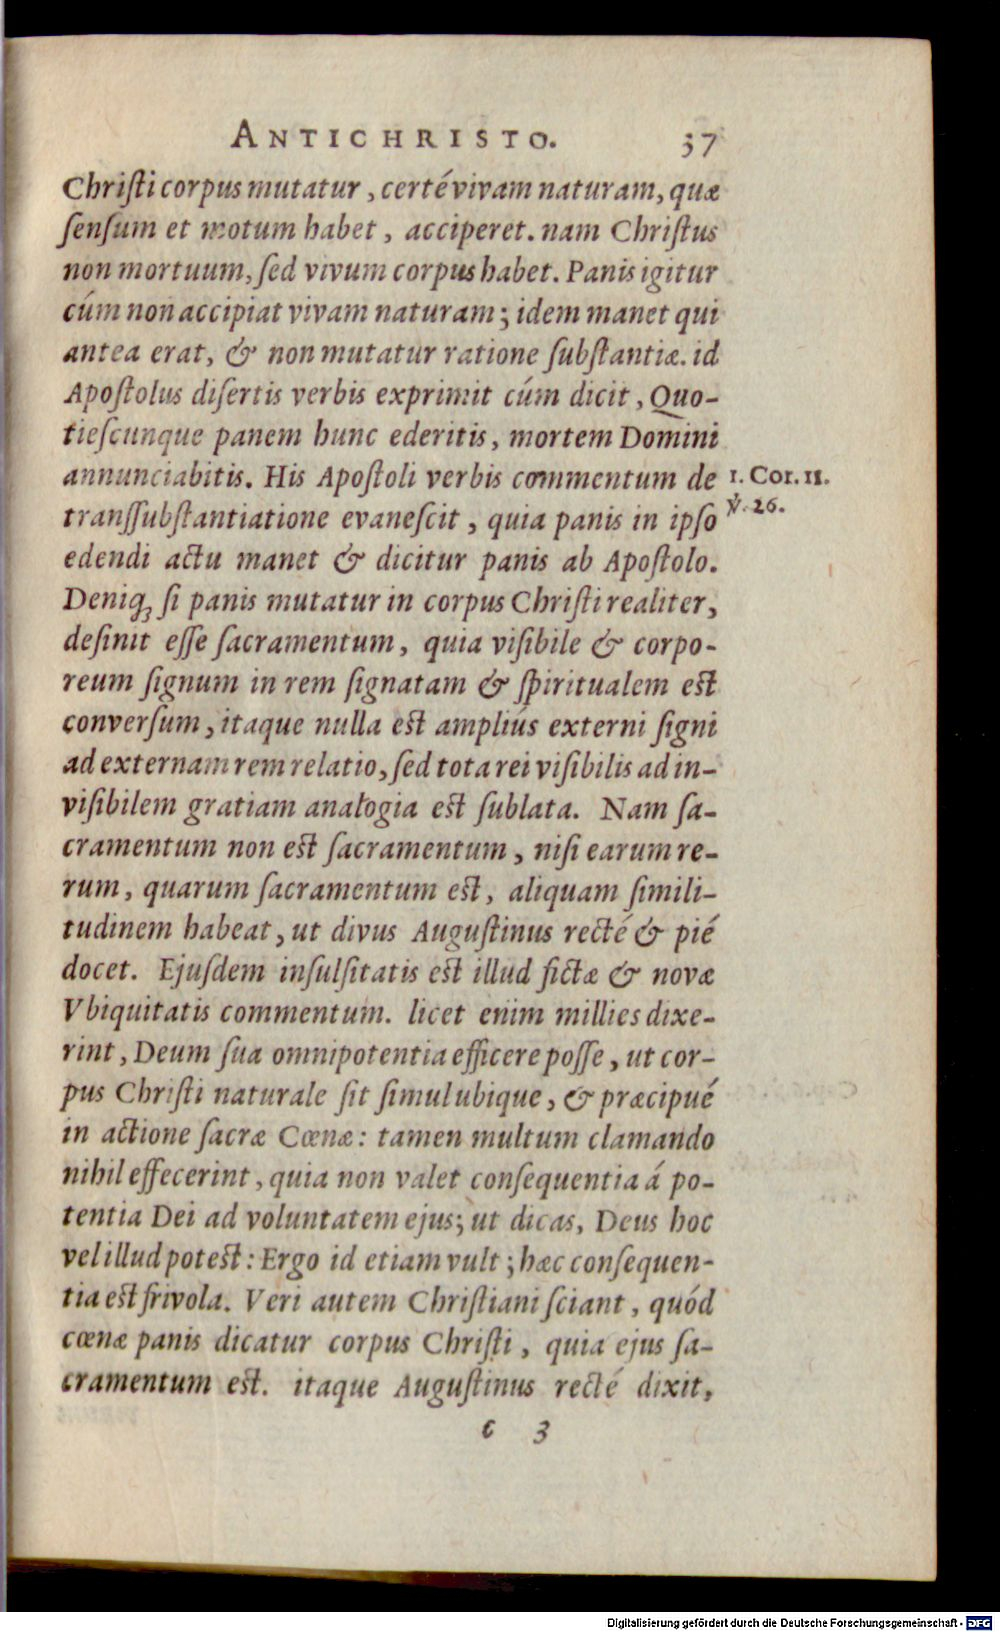 ANTICHRISTO. 37
Chriſti corpus mutatur, certé vivam naturam, quæ
ſenſum et motum habet, acciperet. nam Chriſtus
non mortuum, ſed vivum corpus habet. Panis igitur
cúm non accipiat vivam naturam; idem manet qui
antea erat, & non mutatur ratione ſubſtantiæ. id
Apoſtolus diſertis verbis exprimit cúm dicit, Quo-
tieſcunque panem hunc ederitis, mortem Domini
annunciabitis. His Apoſtoli verbis commentum de 1. Cor. 11.
tranſſubſtantiatione evaneſcit, quia panis in ipſo ℣. 26.
edendi actu manet & dicitur panis ab Apoſtolo.
Deniq; ſi panis mutatur in corpus Chriſti realiter,
deſinit eſſe ſacramentum, quia viſibile & corpo-
reum ſignum in rem ſignatam & ſpiritualem eſt
converſum, itaque nulla eſt ampliús externi ſigni
ad externam rem relatio, ſed tota rei viſibilis ad in-
viſibilem gratiam analogia eſt ſublata. Nam ſa-
cramentum non eſt ſacramentum, niſi earum re-
rum, quarum ſacramentum eſt, aliquam ſimili-
tudinem habeat, ut divus Auguſtinus recté & pié
docet. Ejuſdem inſulſitatis eſt illud fictæ & novæ
Vbiquitatis commentum. licet enim millies dixe-
rint, Deum ſua omnipotentia efficere poſſe, ut cor-
pus Chriſti naturale ſit ſimul ubique, & præcipué
in actione ſacræ Cœnæ: tamen multum clamando
nihil effecerint, quia non valet conſequentia á po-
tentia Dei ad voluntatem ejus; ut dicas, Deus hoc
vel illud poteſt: Ergo id etiam vult; hæc conſequen-
tia eſt frivola. Veri autem Chriſtiani ſciant, quód
cœnæ panis dicatur corpus Chriſti, quia ejus ſa-
cramentum eſt. itaque Auguſtinus recté dixit,
c 3
Digitalisierung gefördert durch die Deutsche Forschungsgemeinschaft - DFG